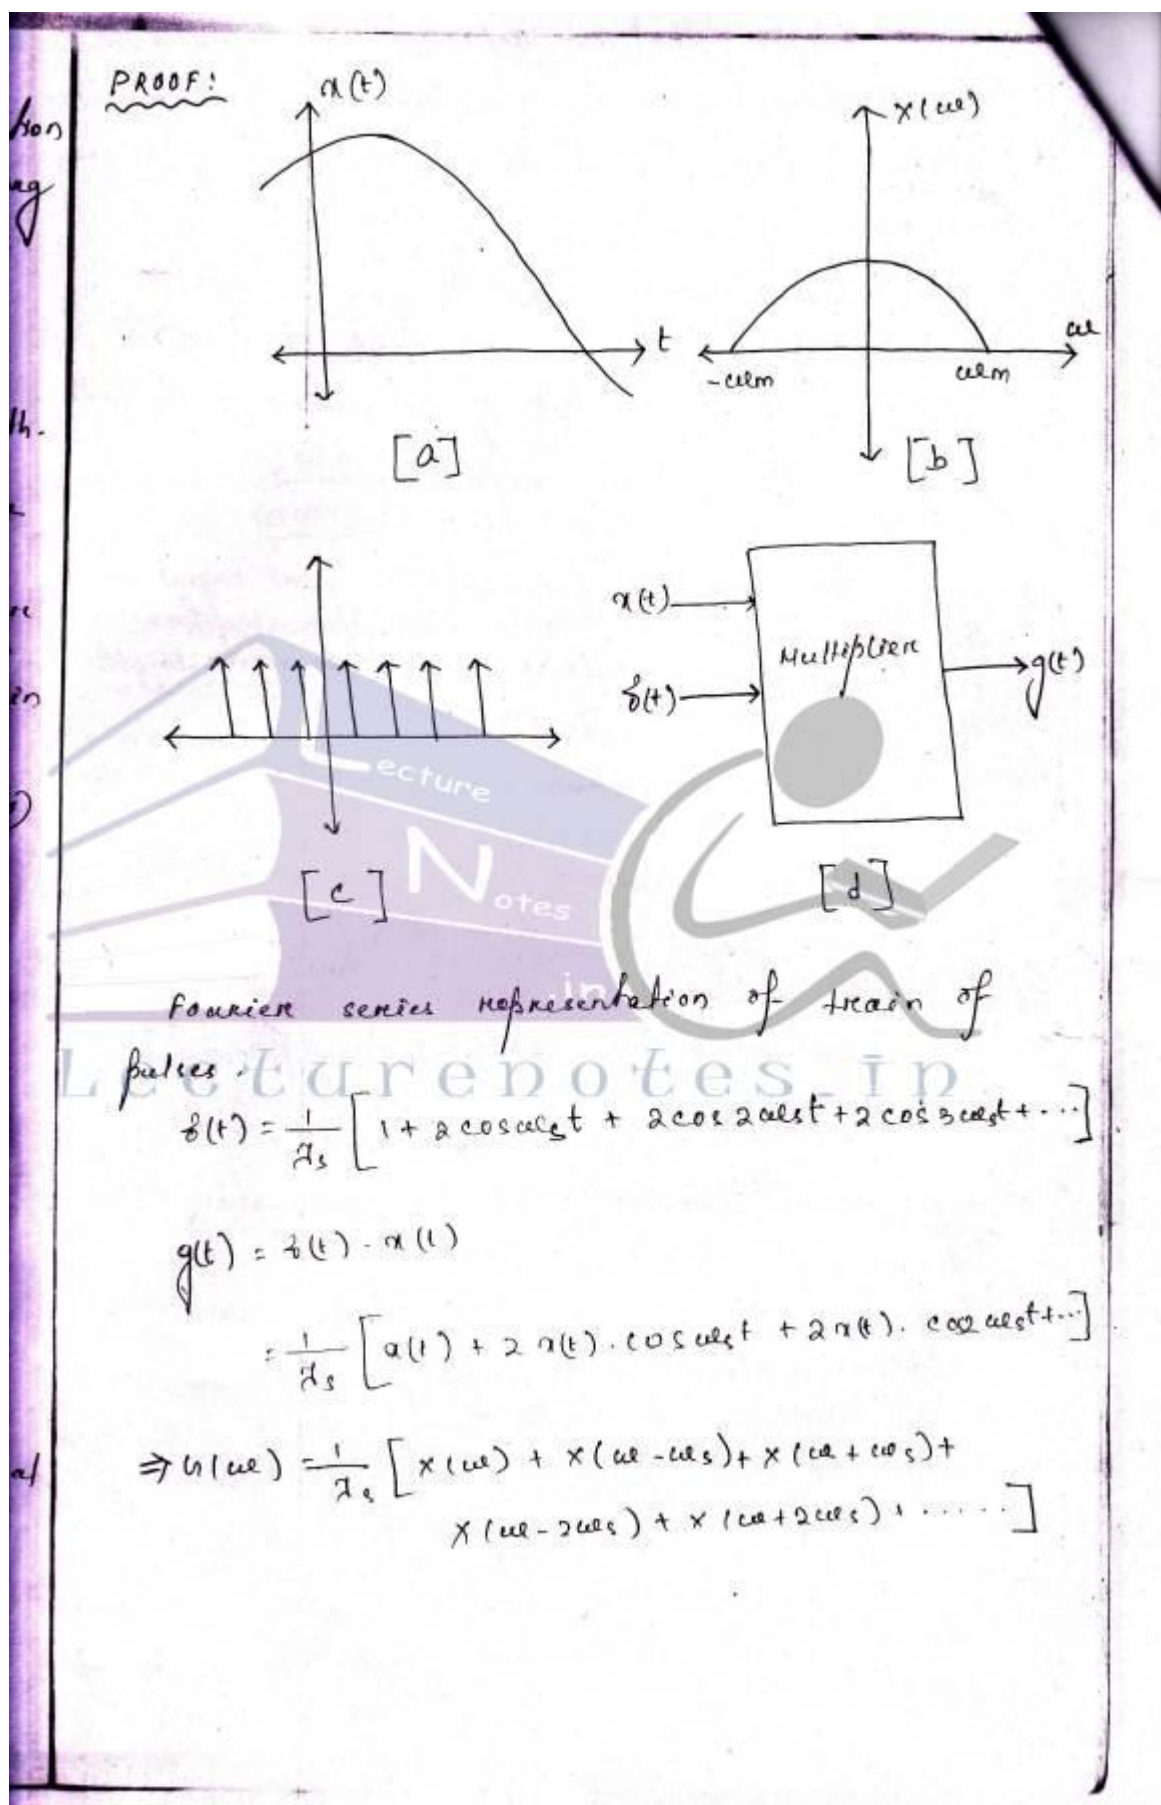 PROOF:
x(t)
X(ω)
t
ω
-ωm
ωm
[a]
[b]
x(t)
Multiplier
g(t)
δ(t)
Lecture
Notes
.in
[c]
[d]
Fourier series representation of train of
pulses.
Lecturenotes.in
δ(t) = 1/Ts [1 + 2cosωst + 2cos2ωst + 2cos3ωst + ...]
g(t) = δ(t) . x(t)
= 1/Ts [x(t) + 2 x(t) . cosωst + 2x(t) . cos2ωst + ...]
⇒ G(ω) = 1/Ts [X(ω) + X(ω - ωs) + X(ω + ωs) +
X(ω - 2ωs) + X(ω + 2ωs) + ......]